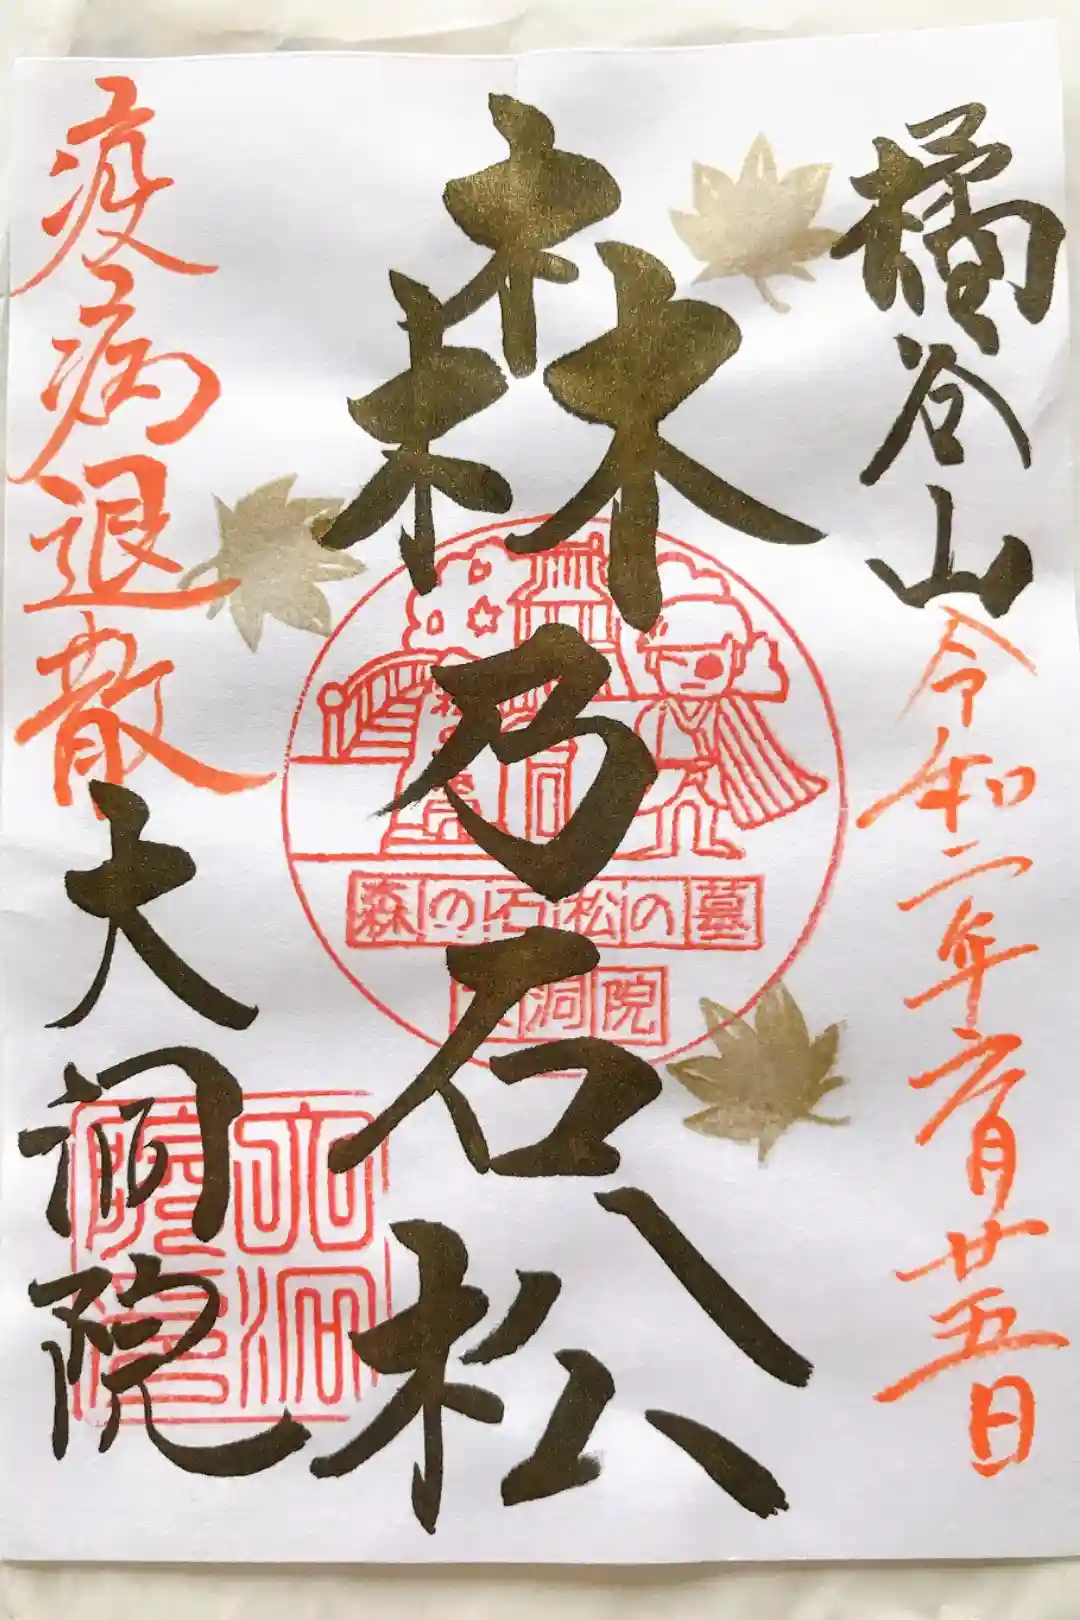 橘谷山
令和二年六月廿五日
森乃石松
森の石松の墓
洞院
疫病退散
大洞院
大洞院